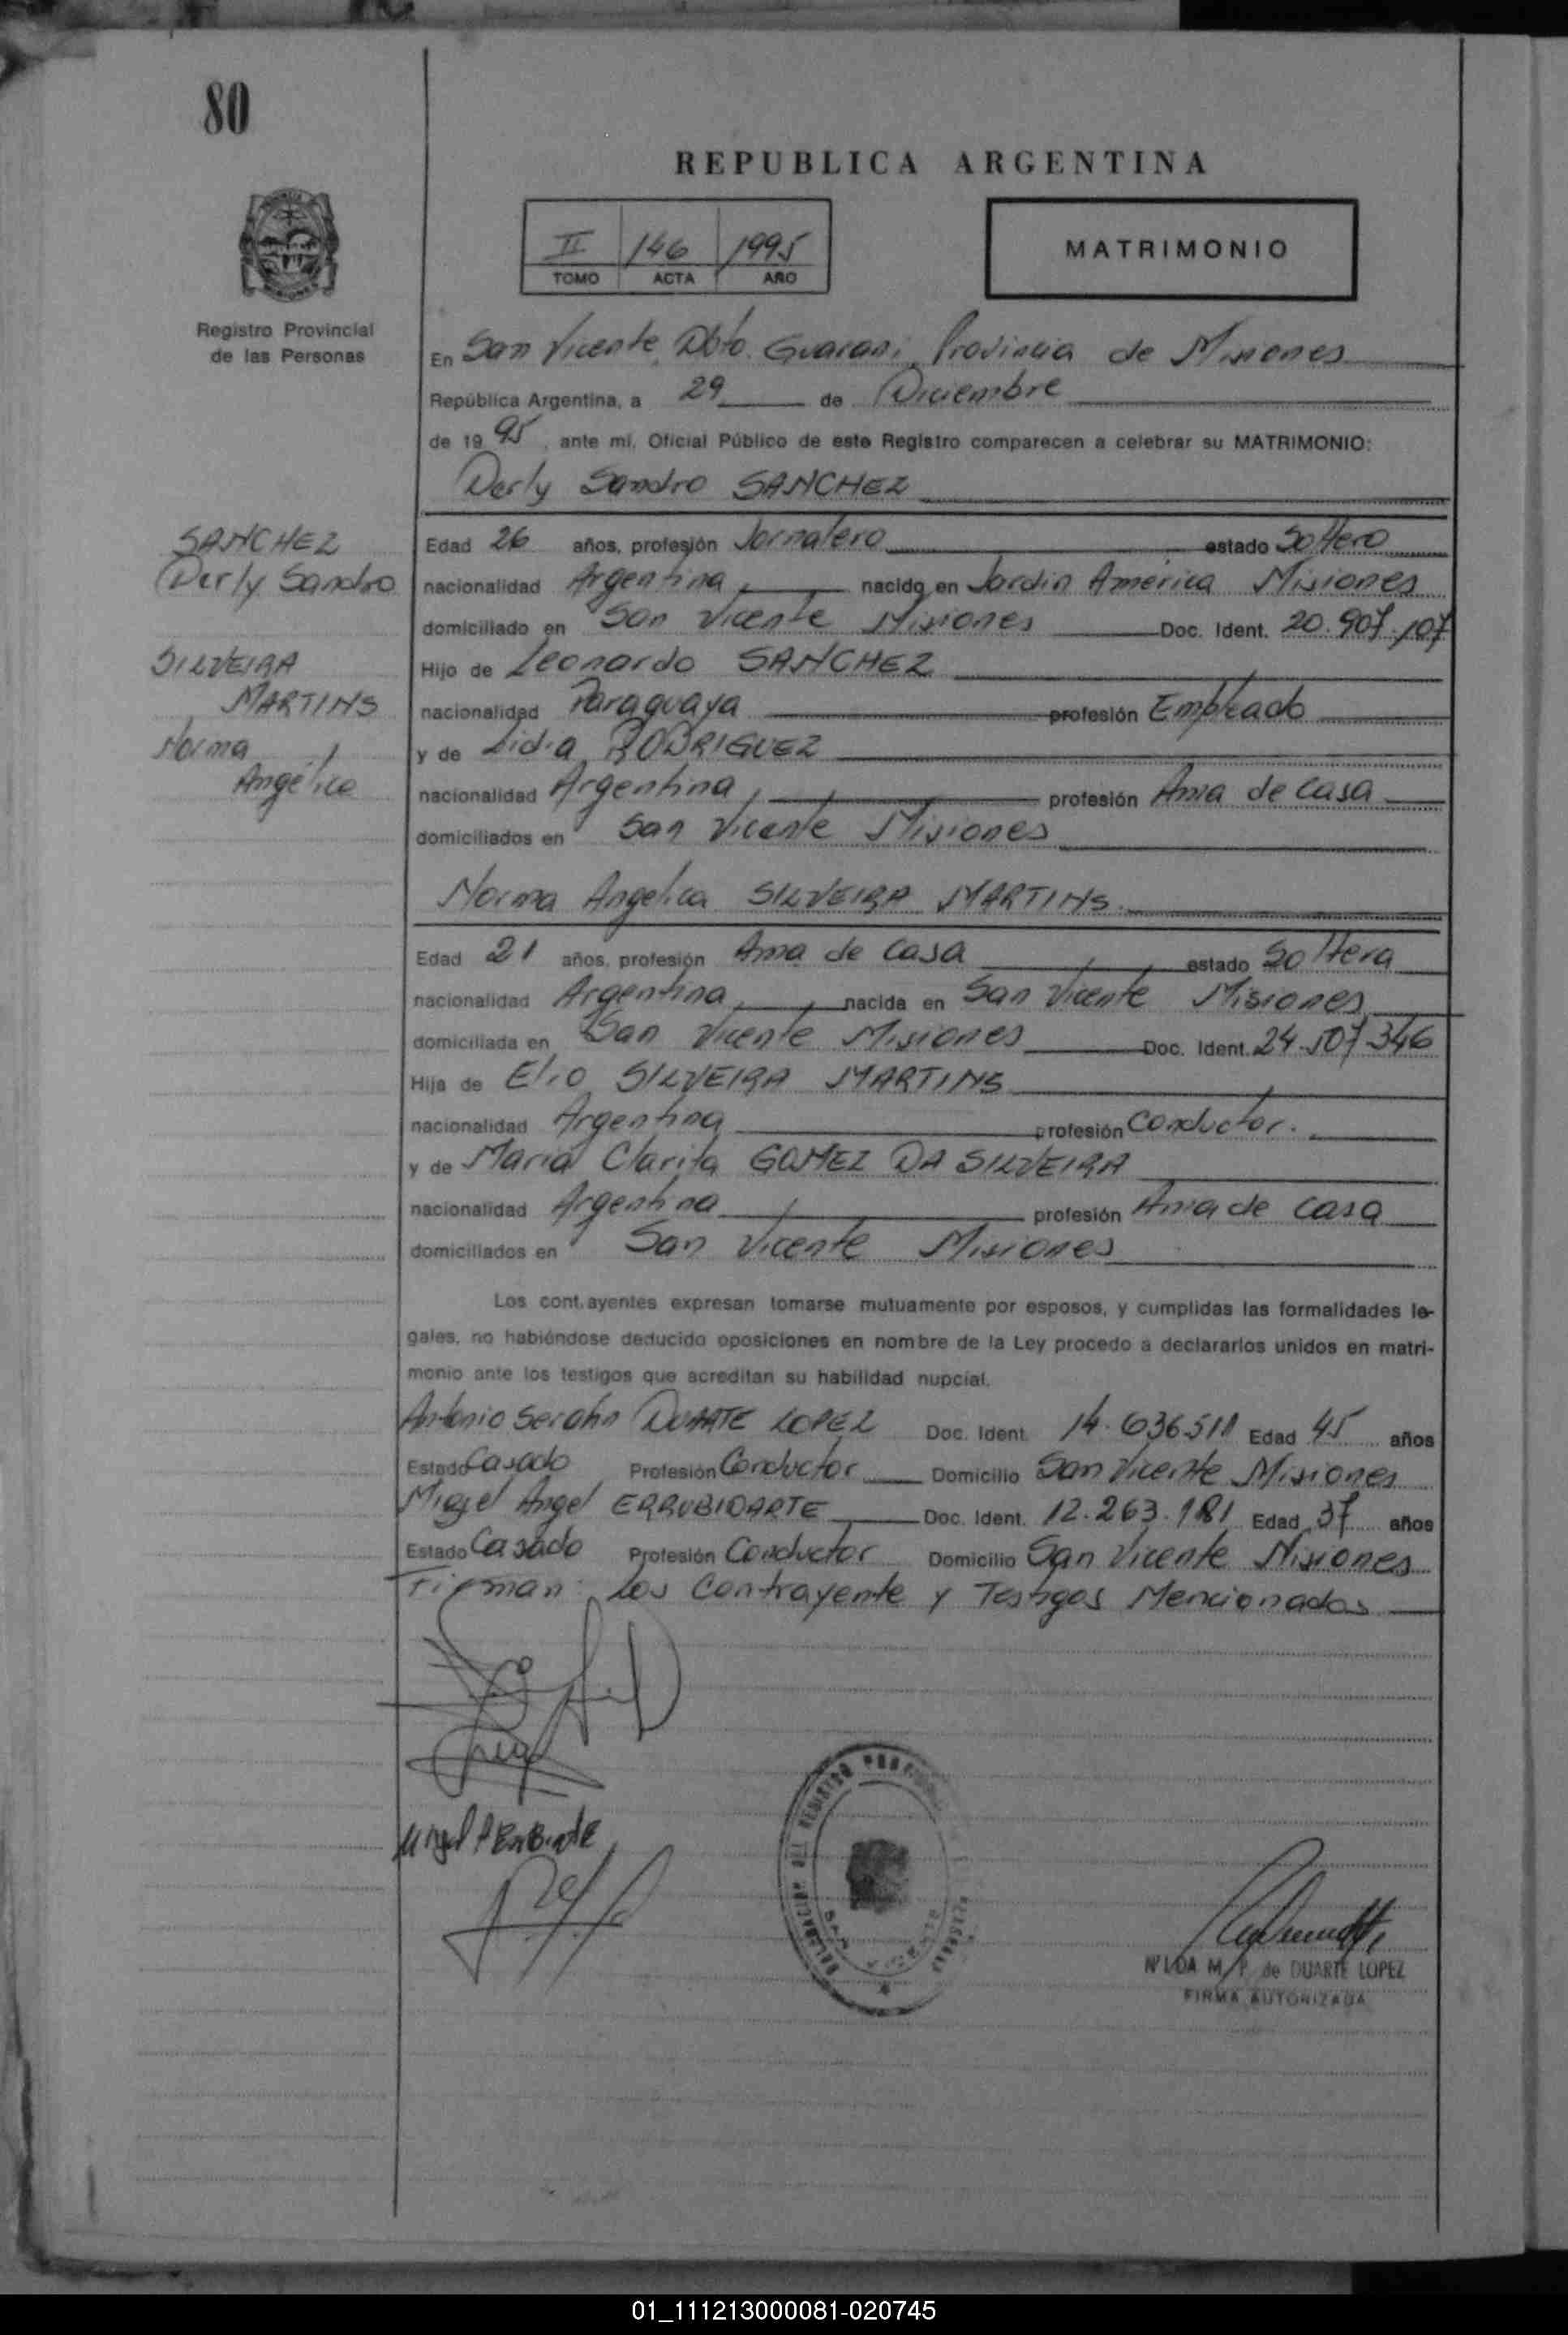 80
REPUBLICA ARGENTINA
II 146 1995
TOMO ACTA AÑO
MATRIMONIO
Registro Provincial
de las Personas
En San Vicente Dpto. Guarani Provincia de Misiones
República Argentina, a 29 de Diciembre
de 19 95, ante mi, Oficial Público de este Registro comparecen a celebrar su MATRIMONIO:
Derly Sandro SANCHEZ
SANCHEZ
Derly Sandro
SILVEIRA
MARTINS
Norma
Angélica
Edad 26 años, profesión Jornalero estado Soltero
nacionalidad Argentina nacido en Jardin América Misiones
domiciliado en San Vicente Misiones Doc. Ident. 20.907.107
Hijo de Leonardo SANCHEZ
nacionalidad Paraguaya profesión Empleado
y de Lidia RODRIGUEZ
nacionalidad Argentina profesión Ama de Casa
domiciliados en San Vicente Misiones
Norma Angelica SILVEIRA MARTINS
Edad 21 años, profesión Ama de Casa estado Soltera
nacionalidad Argentina nacida en San Vicente Misiones
domiciliada en San Vicente Misiones Doc. Ident. 24.107.346
Hija de Elio SILVEIRA MARTINS
nacionalidad Argentina profesión Conductor.
y de Maria Clarita GOMEZ DA SILVEIRA
nacionalidad Argentina profesión Ama de Casa
domiciliados en San Vicente Misiones
Los cont.ayentes expresan tomarse mutuamente por esposos, y cumplidas las formalidades le-
gales, no habiéndose deducido oposiciones en nombre de la Ley procedo a declararlos unidos en matri-
monio ante los testigos que acreditan su habilidad nupcial.
Antonio Serafin DUARTE LOPEZ Doc. Ident. 14.636.511 Edad 45 años
Estado Casado Profesión Conductor Domicilio San Vicente Misiones
Miguel Angel ERRUBIDARTE Doc. Ident. 12.263.181 Edad 37 años
Estado Casado Profesión Conductor Domicilio San Vicente Misiones
Firman: Los Contrayente y Testigos Mencionados
DELEGACION DEL REGISTRO
SAN VICENTE
NILDA M. P. de DUARTE LOPEZ
FIRMA AUTORIZADA
01_111213000081-020745